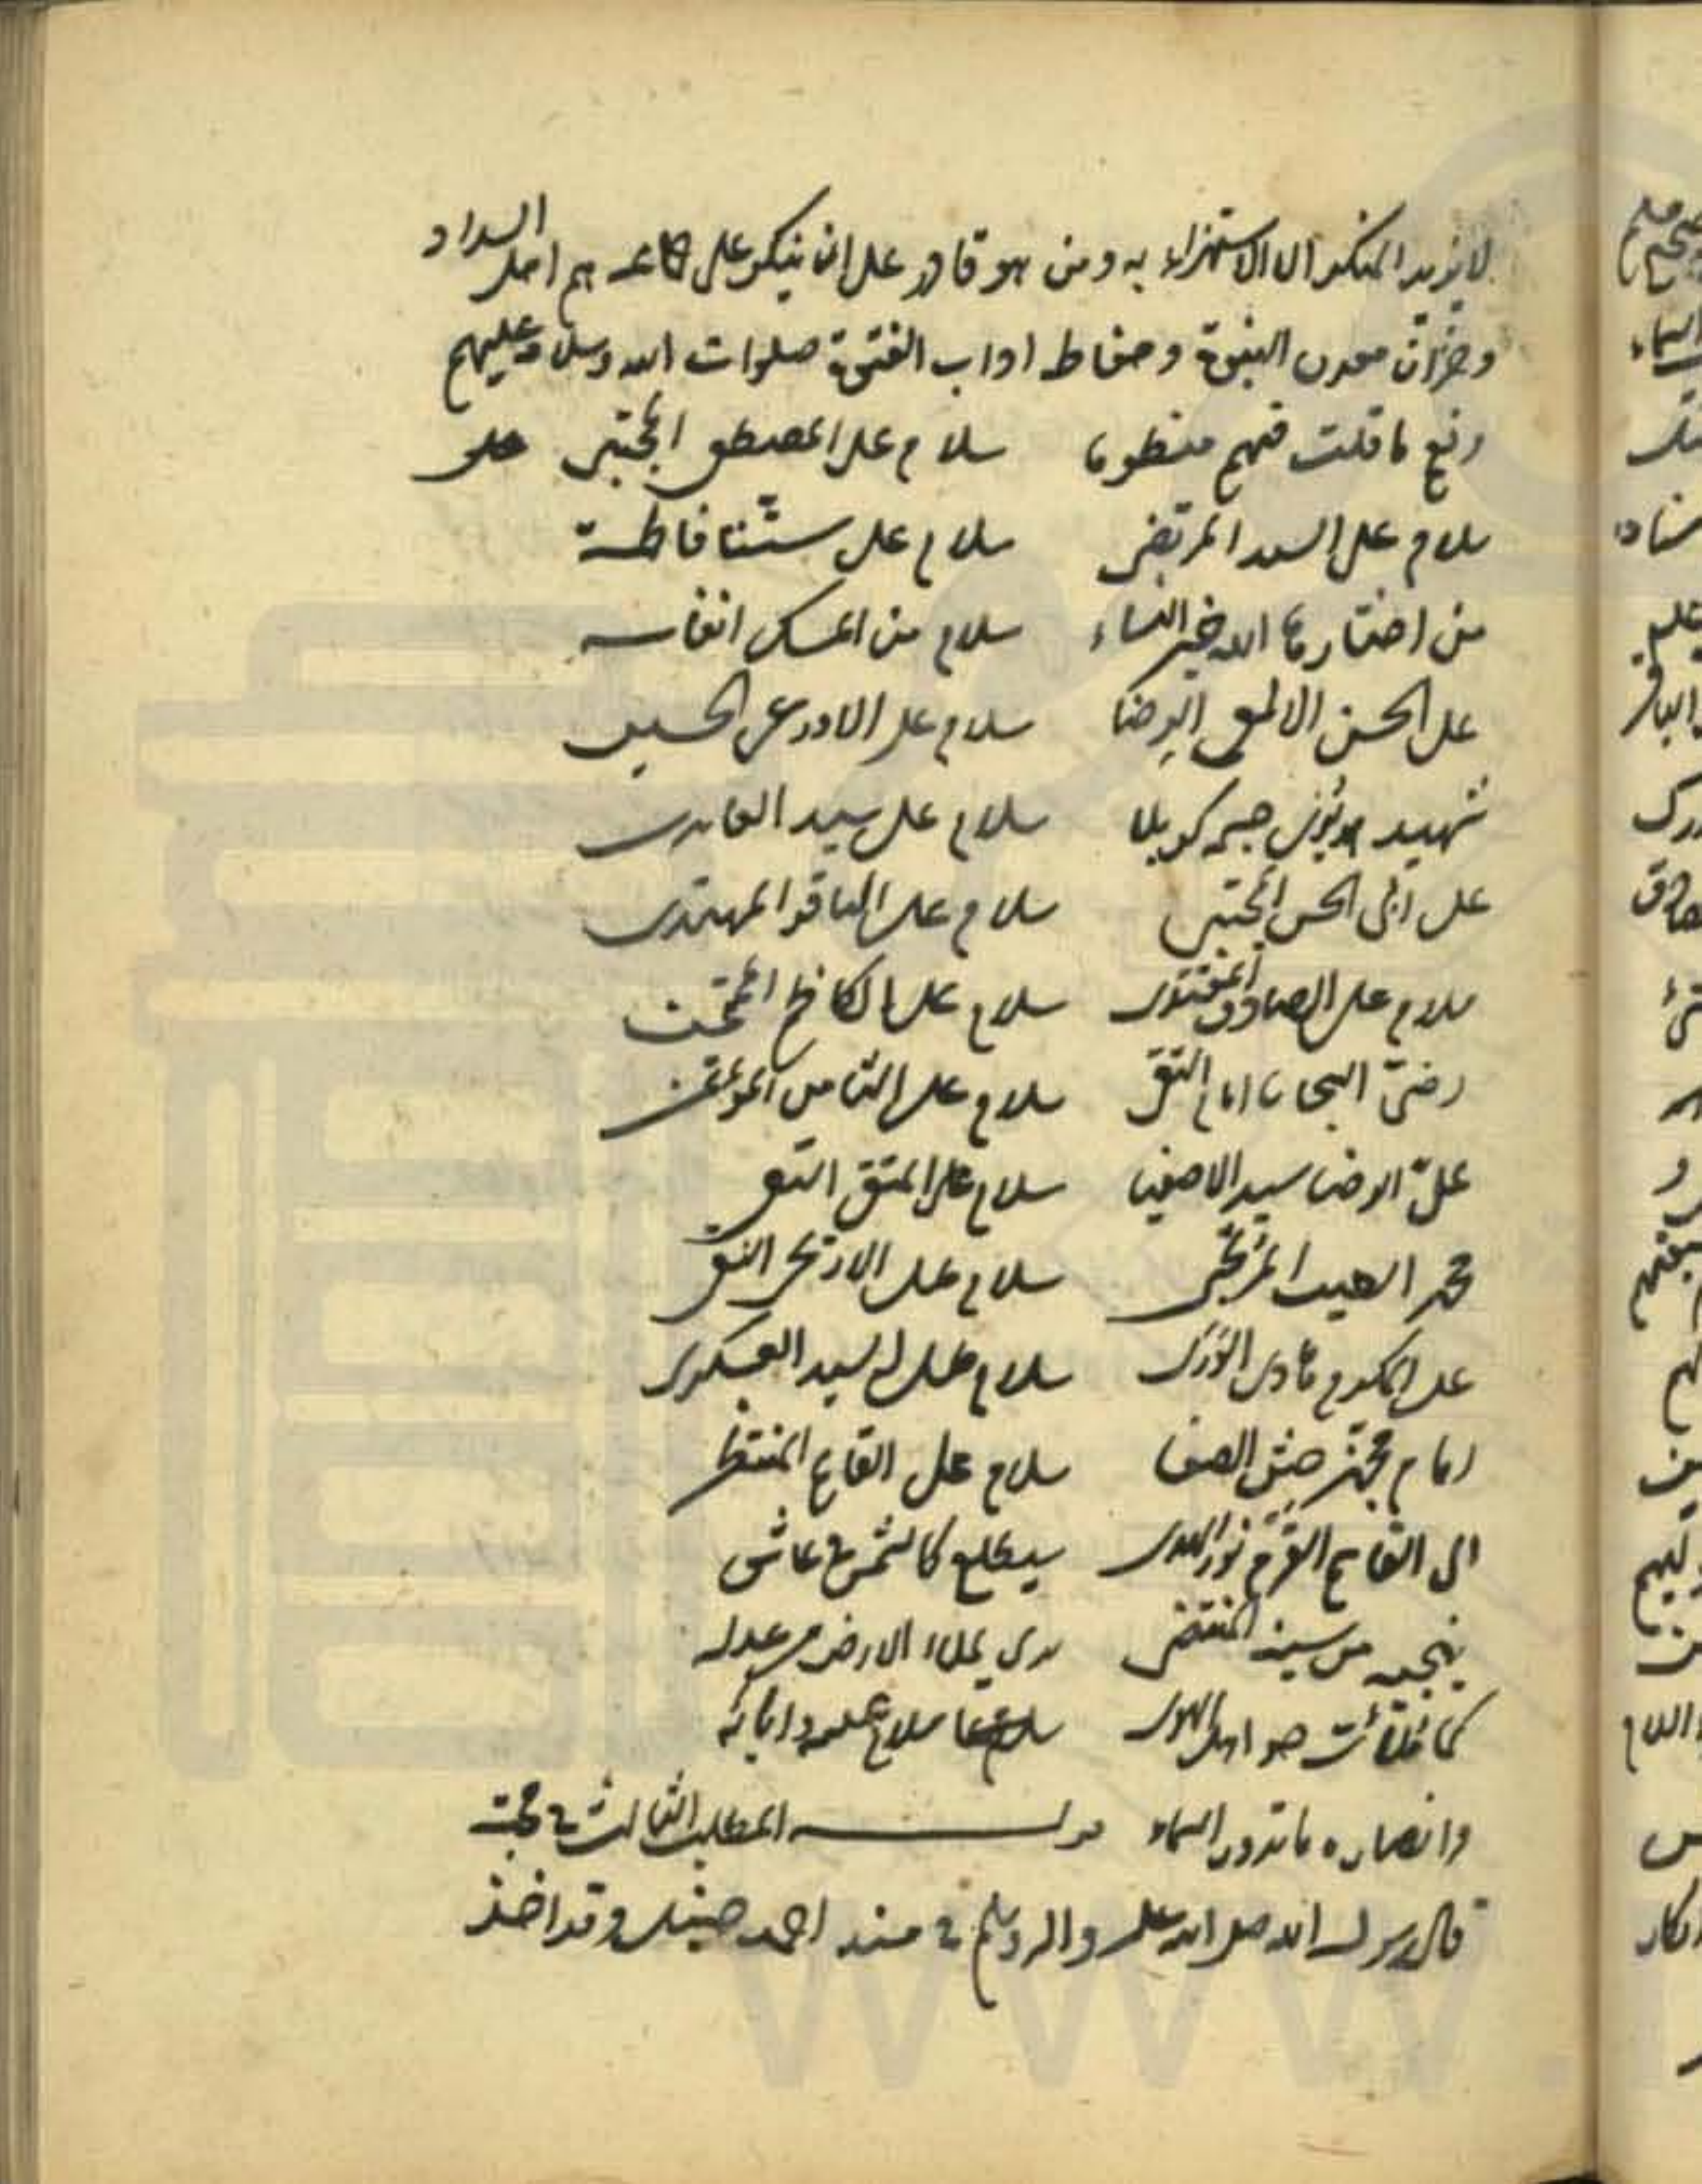 لا يريد المنكر الا الاستهزاء به ومن هو قادر على ان ينكر على جماعة هم اهل السداد
وخزان معدن النبوة وحفاظ اداب الفتوة صلوات الله وسلامه عليهم
ونعم ما قلت فيهم منظوما سلام على المصطفى المجتبى
سلام على السيد المرتضى سلام على ستنا فاطمة
من اختارها الله خير النساء سلام من المسك انفاسه
على الحسن الالمعي الرضا سلام على الاورعي الحسين
شهيد جسمه كربلا سلام على سيد العابدين
على ابن الحسين المجتبى سلام على الباقر المهتدى
سلام على الصادق المقتدى سلام على الكاظم الممتحن
رضي السجايا امام التقى سلام على الثامن المؤتمن
علي الرضا سيد الاصفيا سلام على المتقي التقي
محمد الطيب المرتجى سلام على الاريحي النقي
علي المكرم هادي الورى سلام على السيد العسكري
امام يجهز جيش الصفا سلام على القائم المنتظر
ابي القاسم القرم نور الهدى سيطلع كالشمس في غاسق
ينجيه من سيفه المنتضى ترى يملاء الارض من عدله
كما ملئت جور اهل الهوى سلام عليه وآبائه
وانصاره ما تدور السماء قوله المطلب الثالث في محبته
قال رسول الله صلى الله عليه واله وسلم في مسند احمد حنبل وقد اخذ